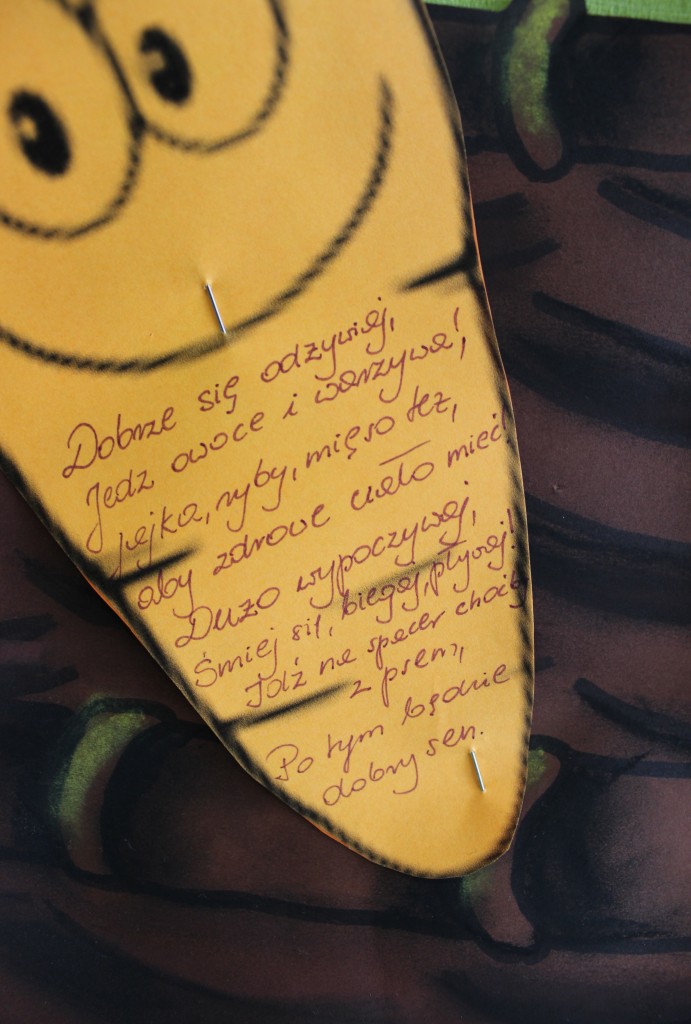 Dobrze się odżywiaj,
Jedz owoce i warzywa!
Jajka, ryby, mięso też,
aby zdrowe ciało mieć!
Dużo wypoczywaj,
Śmiej się, biegaj, pływaj!
Idź na spacer choćby
z psem,
Po tym będzie
dobry sen.